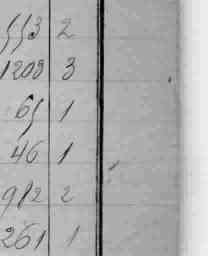 553 2
1203 3
65 1
46 1
982 2
261 1